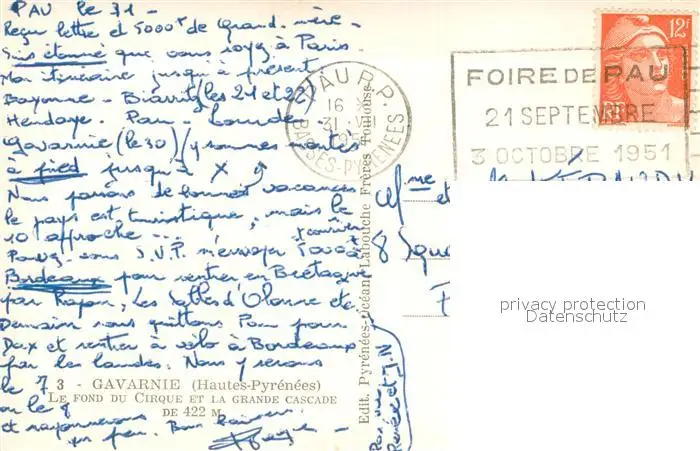 PAU le 31 -
Reçu lettre et 5000 F de Grand-mère -
Suis étonné que vous soyez à Paris.
Mon itinéraire jusqu'à présent
Bayonne - Biarritz (les 21 et 22)
Hendaye - Pau - Lourdes -
Gavarnie (le 30) (y sommes montés
à pied jusqu'à X)
Nous passons de bonnes vacances
le pays est touristique, mais le
10 approche...
Pouvez-vous S.V.P. m'envoyer à
Bordeaux pour rentrer en Bretagne
par Les Sables d'Olonne etc
Demain nous quittons Pau pour
Dax et rentrer à vélo à Bordeaux
par les Landes. Nous y serons
le 7
ou le 8
et rayonnerons
un peu. Bons baisers
3 - GAVARNIE (Hautes-Pyrénées)
LE FOND DU CIRQUE ET LA GRANDE CASCADE
DE 422 M.
Edit. Pyrénées-Océan, Labouche Frères Toulouse
Renée et J.N
PAU R.P.
16
31
BASSES-PYRENEES
FOIRE DE PAU
21 SEPTEMBRE
3 OCTOBRE 1951
12F
Mme et
8 Squa
privacy protection
Datenschutz